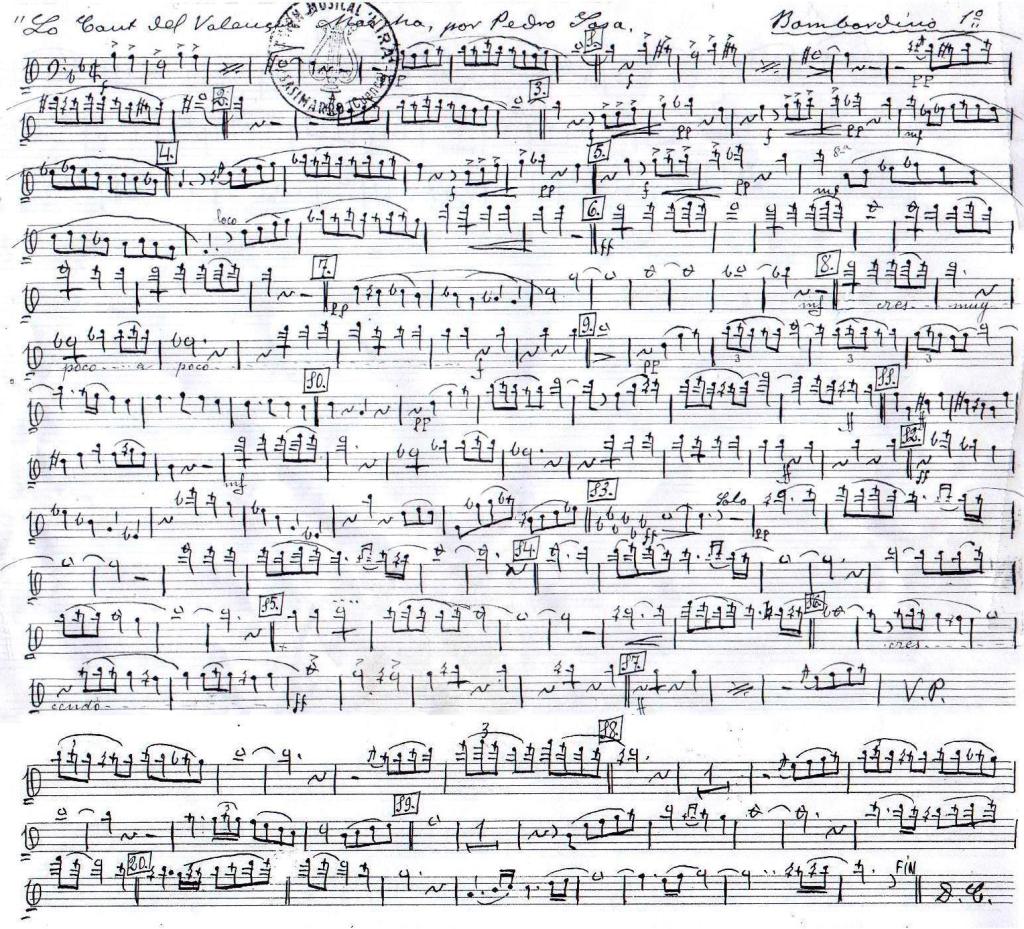 "Lo Cant del Valencia Marcha, por Pedro Sosa. Bombardino 1º
MUSICAL
SISANTE (CUENCA)
1.
pp pp
2. 3.
f pp f pp mf
4. 5. 8ª
f pp f pp mf
loco 6.
ff
7. 8.
pp mf cres muy
9.
poco a poco f pp
3 3 3
10. 11.
pp ff
12.
mf ff ff
13. Solo
ff pp
14.
15. 16.
cres
17.
cendo ff ff V.P.
3 3 18.
1
3 19.
1
20. FIN
D. C.